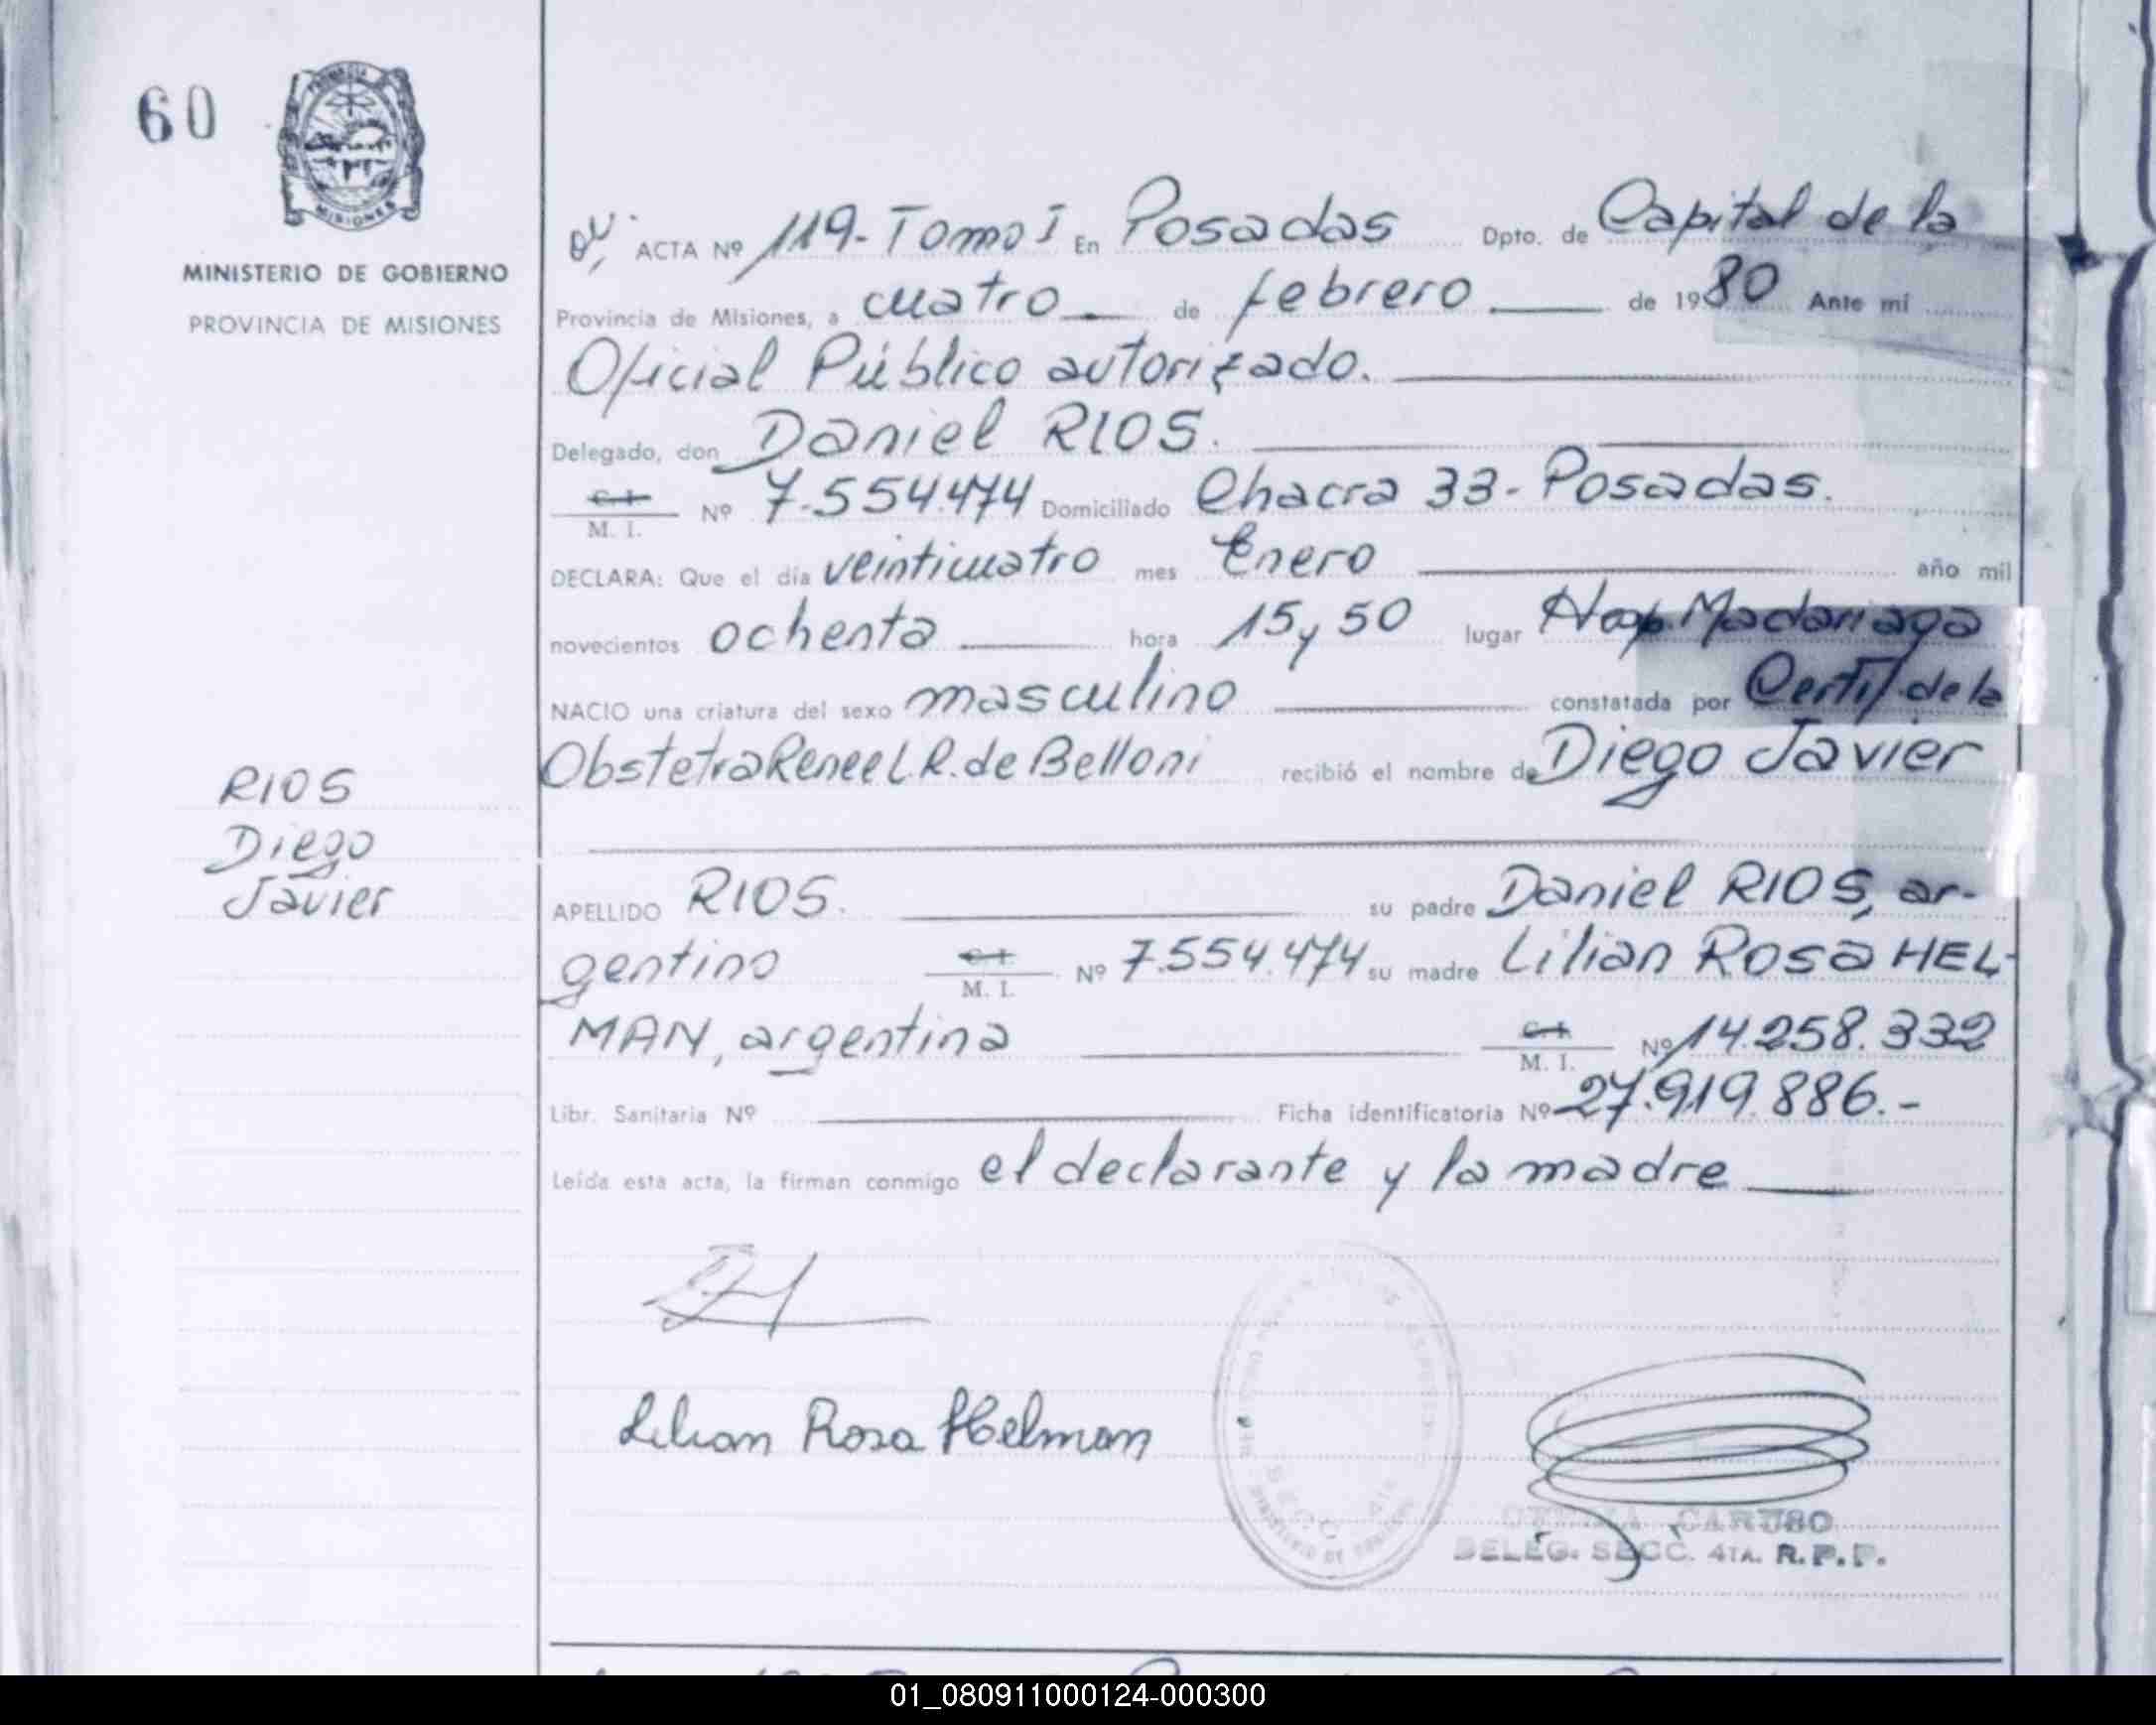 60
MISIONES
MINISTERIO DE GOBIERNO
PROVINCIA DE MISIONES
RIOS
Diego
Javier
ACTA Nº 119-Tomo I En Posadas Dpto. de Capital de la
Provincia de Misiones, a cuatro de febrero de 1980 Ante mi
Oficial Público autorizado.
Delegado, don Daniel RIOS.
C. I. Nº 7.554.474 Domiciliado Chacra 33-Posadas.
M. I.
DECLARA: Que el día veinticuatro mes Enero año mil
novecientos ochenta hora 15,50 lugar Hosp. Madariaga
NACIO una criatura del sexo masculino constatada por Certif. de la
Obstetra Renee L.R. de Belloni recibió el nombre de Diego Javier
APELLIDO RIOS. su padre Daniel RIOS, ar-
gentino C. I. Nº 7.554.474 su madre Lilian Rosa HEL-
M. I.
MAN, argentina C. I. Nº 14.258.332
M. I.
Libr. Sanitaria Nº Ficha identificatoria Nº 27.919.886.-
Leída esta acta, la firman conmigo el declarante y la madre
Lilian Rosa Helman
CARUSO
DELEG. SECC. 4TA. R.P.P.
01_080911000124-000300